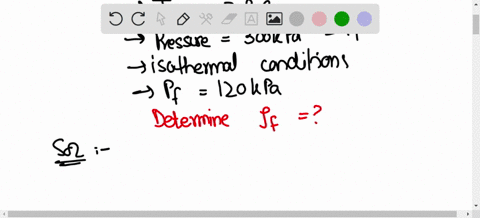 → Pressure = 300kPa
→ isothermal conditions
→ Pf = 120kPa
Determine ρf = ?
Sol :-